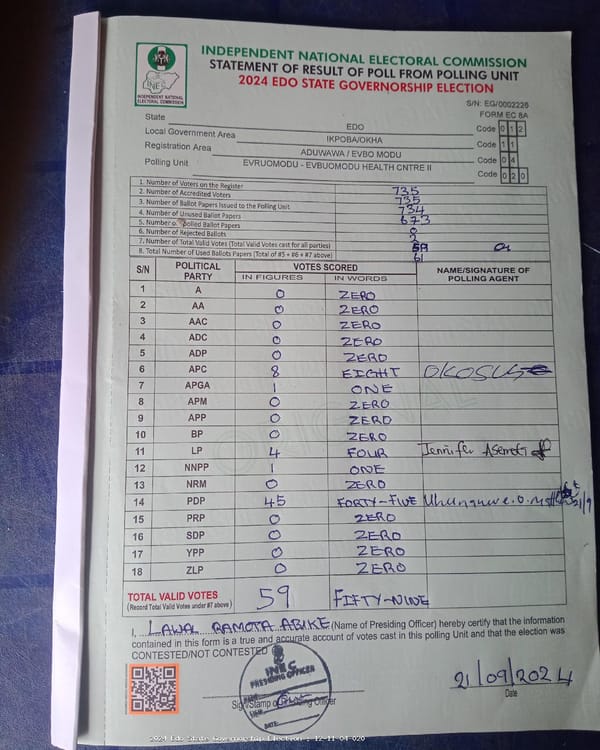 INDEPENDENT NATIONAL ELECTORAL COMMISSION
STATEMENT OF RESULT OF POLL FROM POLLING UNIT
2024 EDO STATE GOVERNORSHIP ELECTION
INEC
INDEPENDENT NATIONAL
ELECTORAL COMMISSION
S/N: EG/0002226
FORM EC 8A
State EDO Code 0 1 2
Local Government Area IKPOBA/OKHA Code 1 1
Registration Area ADUWAWA / EVBO MODU Code 0 4
Polling Unit EVRUOMODU - EVBUOMODU HEALTH CNTRE II Code 0 2 0
1. Number of Voters on the Register 735
2. Number of Accredited Voters 735
3. Number of Ballot Papers Issued to the Polling Unit 734
4. Number of Unused Ballot Papers 673
5. Number of Spoiled Ballot Papers 0
6. Number of Rejected Ballots 2
7. Number of Total Valid Votes (Total Valid Votes cast for all parties) 59
8. Total Number of Used Ballots Papers (Total of #5 + #6 + #7 above) 61
S/N POLITICAL PARTY VOTES SCORED NAME/SIGNATURE OF POLLING AGENT
IN FIGURES IN WORDS
1 A 0 ZERO
2 AA 0 ZERO
3 AAC 0 ZERO
4 ADC 0 ZERO
5 ADP 0 ZERO
6 APC 8 EIGHT
7 APGA 1 ONE
8 APM 0 ZERO
9 APP 0 ZERO
10 BP 0 ZERO
11 LP 4 FOUR Jennifer
12 NNPP 1 ONE
13 NRM 0 ZERO
14 PDP 45 FORTY-FIVE 21/9
15 PRP 0 ZERO
16 SDP 0 ZERO
17 YPP 0 ZERO
18 ZLP 0 ZERO
TOTAL VALID VOTES 59 FIFTY-NINE
(Record Total Valid Votes under #7 above)
I, LAWAL RAMOTA ABIKE (Name of Presiding Officer) hereby certify that the information
contained in this form is a true and accurate account of votes cast in this polling Unit and that the election was
CONTESTED/NOT CONTESTED
INEC
PRESIDING OFFICER
DATE:
Sign/Stamp of Presiding Officer
21/09/2024
Date
2024 Edo State Governorship Election : 12-11-04-020